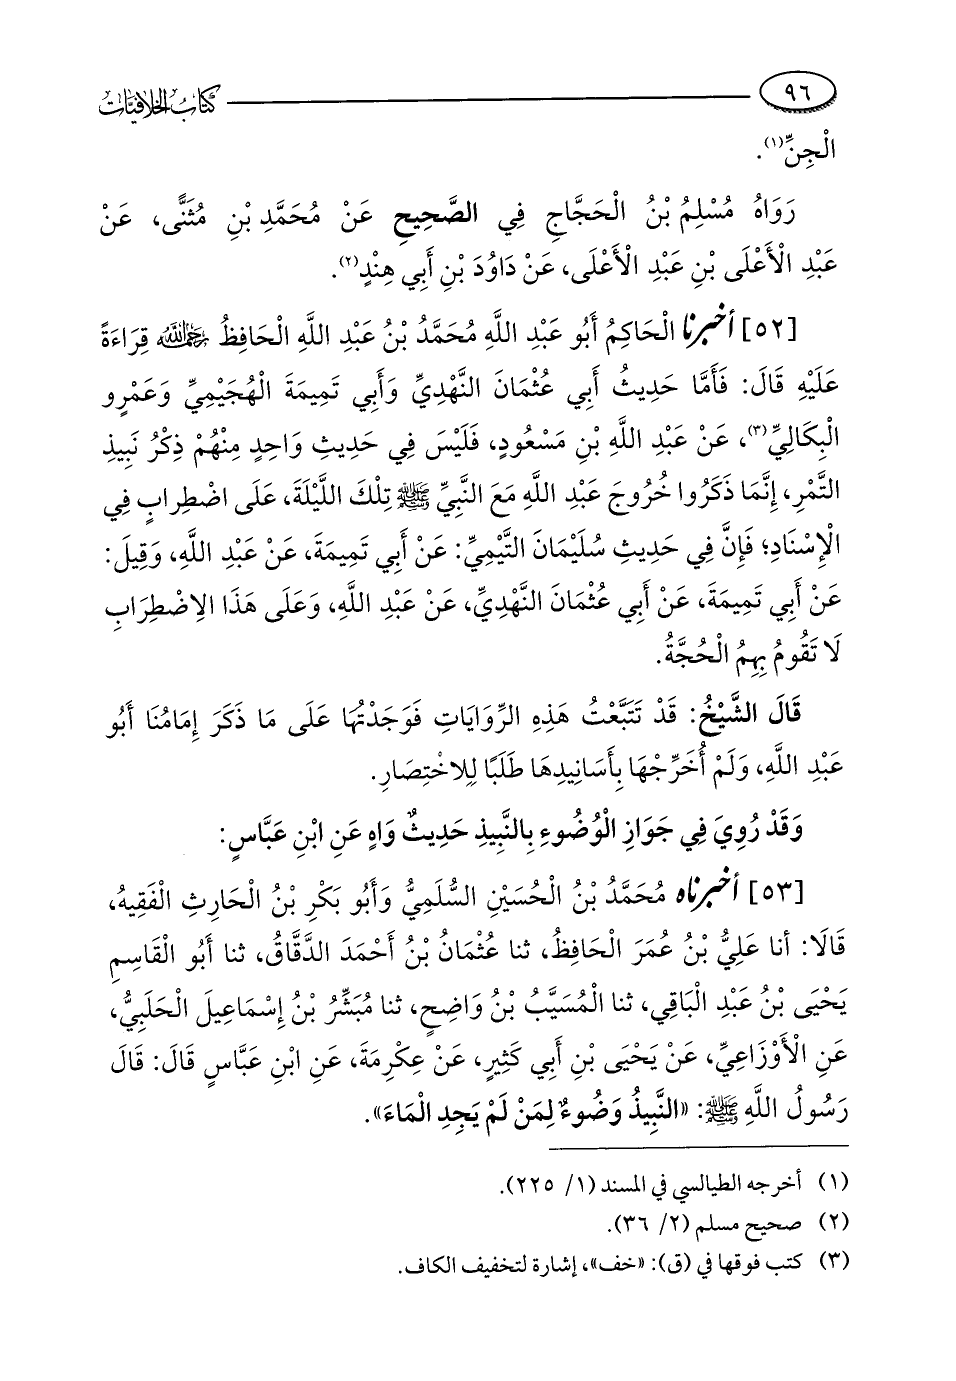 ٩٦ كتاب الخلافيات
الْجِنِّ(١).
رَوَاهُ مُسْلِمُ بْنُ الْحَجَّاجِ فِي الصَّحِيحِ عَنْ مُحَمَّدِ بْنِ مُثَنًّى، عَنْ
عَبْدِ الْأَعْلَى بْنِ عَبْدِ الْأَعْلَى، عَنْ دَاوُدَ بْنِ أَبِي هِنْدٍ(٢).
[٥٢] أخبرنا الْحَاكِمُ أَبُو عَبْدِ اللَّهِ مُحَمَّدُ بْنُ عَبْدِ اللَّهِ الْحَافِظُ رحمه الله قِرَاءَةً
عَلَيْهِ قَالَ: فَأَمَّا حَدِيثُ أَبِي عُثْمَانَ النَّهْدِيِّ وَأَبِي تَمِيمَةَ الْهُجَيْمِيِّ وَعَمْرٍو
الْبِكَالِيِّ(٣)، عَنْ عَبْدِ اللَّهِ بْنِ مَسْعُودٍ، فَلَيْسَ فِي حَدِيثِ وَاحِدٍ مِنْهُمْ ذِكْرُ نَبِيذِ
التَّمْرِ، إِنَّمَا ذَكَرُوا خُرُوجَ عَبْدِ اللَّهِ مَعَ النَّبِيِّ ﷺ تِلْكَ اللَّيْلَةَ، عَلَى اضْطِرابٍ فِي
الْإِسْنَادِ؛ فَإِنَّ فِي حَدِيثِ سُلَيْمَانَ التَّيْمِيِّ: عَنْ أَبِي تَمِيمَةَ، عَنْ عَبْدِ اللَّهِ، وَقِيلَ:
عَنْ أَبِي تَمِيمَةَ، عَنْ أَبِي عُثْمَانَ النَّهْدِيِّ، عَنْ عَبْدِ اللَّهِ، وَعَلَى هَذَا الِاضْطِرَابِ
لَا تَقُومُ بِهِمُ الْحُجَّةُ.
قَالَ الشَّيْخُ: قَدْ تَتَبَّعْتُ هَذِهِ الرِّوَايَاتِ فَوَجَدْتُهَا عَلَى مَا ذَكَرَ إِمَامُنَا أَبُو
عَبْدِ اللَّهِ، وَلَمْ أُخَرِّجْهَا بِأَسَانِيدِهَا طَلَبًا لِلِاخْتِصَارِ.
وَقَدْ رُوِيَ فِي جَوَازِ الْوُضُوءِ بِالنَّبِيذِ حَدِيثٌ وَاهٍ عَنِ ابْنِ عَبَّاسٍ:
[٥٣] أخبرناه مُحَمَّدُ بْنُ الْحُسَيْنِ السُّلَمِيُّ وَأَبُو بَكْرِ بْنُ الْحَارِثِ الْفَقِيهُ،
قَالَا: أنا عَلِيُّ بْنُ عُمَرَ الْحَافِظُ، ثنا عُثْمَانُ بْنُ أَحْمَدَ الدَّقَّاقُ، ثنا أَبُو الْقَاسِمِ
يَحْيَى بْنُ عَبْدِ الْبَاقِي، ثنا الْمُسَيَّبُ بْنُ وَاضِحٍ، ثنا مُبَشِّرُ بْنُ إِسْمَاعِيلَ الْحَلَبِيُّ،
عَنِ الْأَوْزَاعِيِّ، عَنْ يَحْيَى بْنِ أَبِي كَثِيرٍ، عَنْ عِكْرِمَةَ، عَنِ ابْنِ عَبَّاسٍ قَالَ: قَالَ
رَسُولُ اللَّهِ ﷺ: «النَّبِيذُ وَضُوءٌ لِمَنْ لَمْ يَجِدِ الْمَاءَ».
(١) أخرجه الطيالسي في المسند (١/ ٢٢٥).
(٢) صحيح مسلم (٢/ ٣٦).
(٣) كتب فوقها في (ق): «خف»، إشارة لتخفيف الكاف.